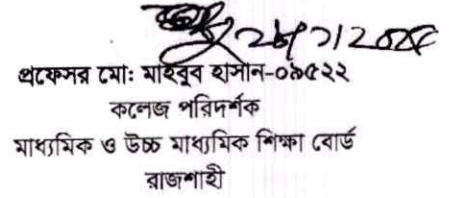 প্রফেসর মোঃ মাহবুব হাসান-০৯৫২২
কলেজ পরিদর্শক
মাধ্যমিক ও উচ্চ মাধ্যমিক শিক্ষা বোর্ড
রাজশাহী